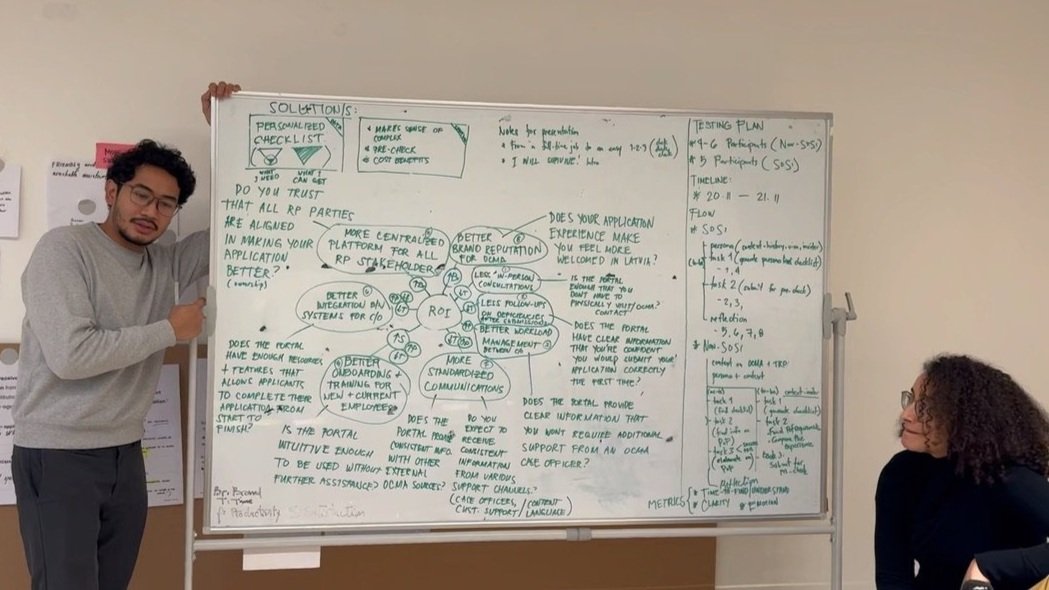 SOLUTION/S:
PERSONALIZED
CHECKLIST
WHAT
I NEED
WHAT I
CAN GET
MAKES SENSE OF
COMPLEX
PRE-CHECK
COST BENEFITS
Notes for presentation
From a full-time job to an easy 1-2-3
I WILL SURVIVE!
DO YOU TRUST
THAT ALL RP PARTIES
ARE ALIGNED
IN MAKING YOUR
APPLICATION
BETTER?
(ownership)
MORE CENTRALIZED
PLATFORM FOR ALL
RP STAKEHOLDERS
BETTER
BRAND REPUTATION
FOR OCMA
DOES YOUR APPLICATION
EXPERIENCE MAKE
YOU FEEL MORE
WELCOMED IN LATVIA?
LESS IN-PERSON
CONSULTATIONS
IS THE PORTAL
ENOUGH THAT YOU
DON'T HAVE TO
PHYSICALLY VISIT/OCMA?
CONTACT
BETTER
INTEGRATION
SYSTEMS FOR C/O
ROI
LESS FOLLOW-UPS
ON DEFICIENCIES
AFTER SUBMISSION
BETTER WORKLOAD
MANAGEMENT
BETWEEN
DOES THE PORTAL
HAVE CLEAR INFORMATION
THAT YOU'RE CONFIDENT
YOU WOULD SUBMIT YOUR
APPLICATION CORRECTLY
THE FIRST TIME?
DOES THE PORTAL
HAVE ENOUGH RESOURCES
+ FEATURES THAT
ALLOWS APPLICANTS
TO COMPLETE THEIR
APPLICATION FROM
START TO
FINISH?
BETTER
ONBOARDING +
TRAINING FOR
NEW + CURRENT
EMPLOYEES
MORE
STANDARDIZED
COMMUNICATIONS
DOES THE PORTAL PROVIDE
CLEAR INFORMATION THAT
YOU WONT REQUIRE ADDITIONAL
SUPPORT FROM AN OCMA
CASE OFFICER?
IS THE PORTAL
INTUITIVE ENOUGH
TO BE USED WITHOUT EXTERNAL
FURTHER ASSISTANCE?
DOES THE
PORTAL PROVIDE
CONSISTENT INFO.
WITH OTHER
OCMA SOURCES?
DO YOU
EXPECT TO
RECEIVE
CONSISTENT
INFORMATION
FROM VARIOUS
SUPPORT CHANNELS?
(CASE OFFICERS,
CUST. SUPPORT/CONTENT
LANGUAGE)
Br- Brand
T- Time
P- Productivity
TESTING PLAN
* 4-6 Participants (Non-SDSi)
* 5 Participants (SDSi)
TIMELINE:
* 20.11 — 21.11
FLOW
* SDSi
task 1
- 1, 4
task 2 (submit for pre-check)
- 2, 3,
reflection
- 5, 6, 7, 8
* Non-SDSi
persona + context
task 1
task 2
task 3
Reflection
METRICS
* TIME-TO-FIND/UNDERSTAND
* CLARITY
* EMOTIONAL